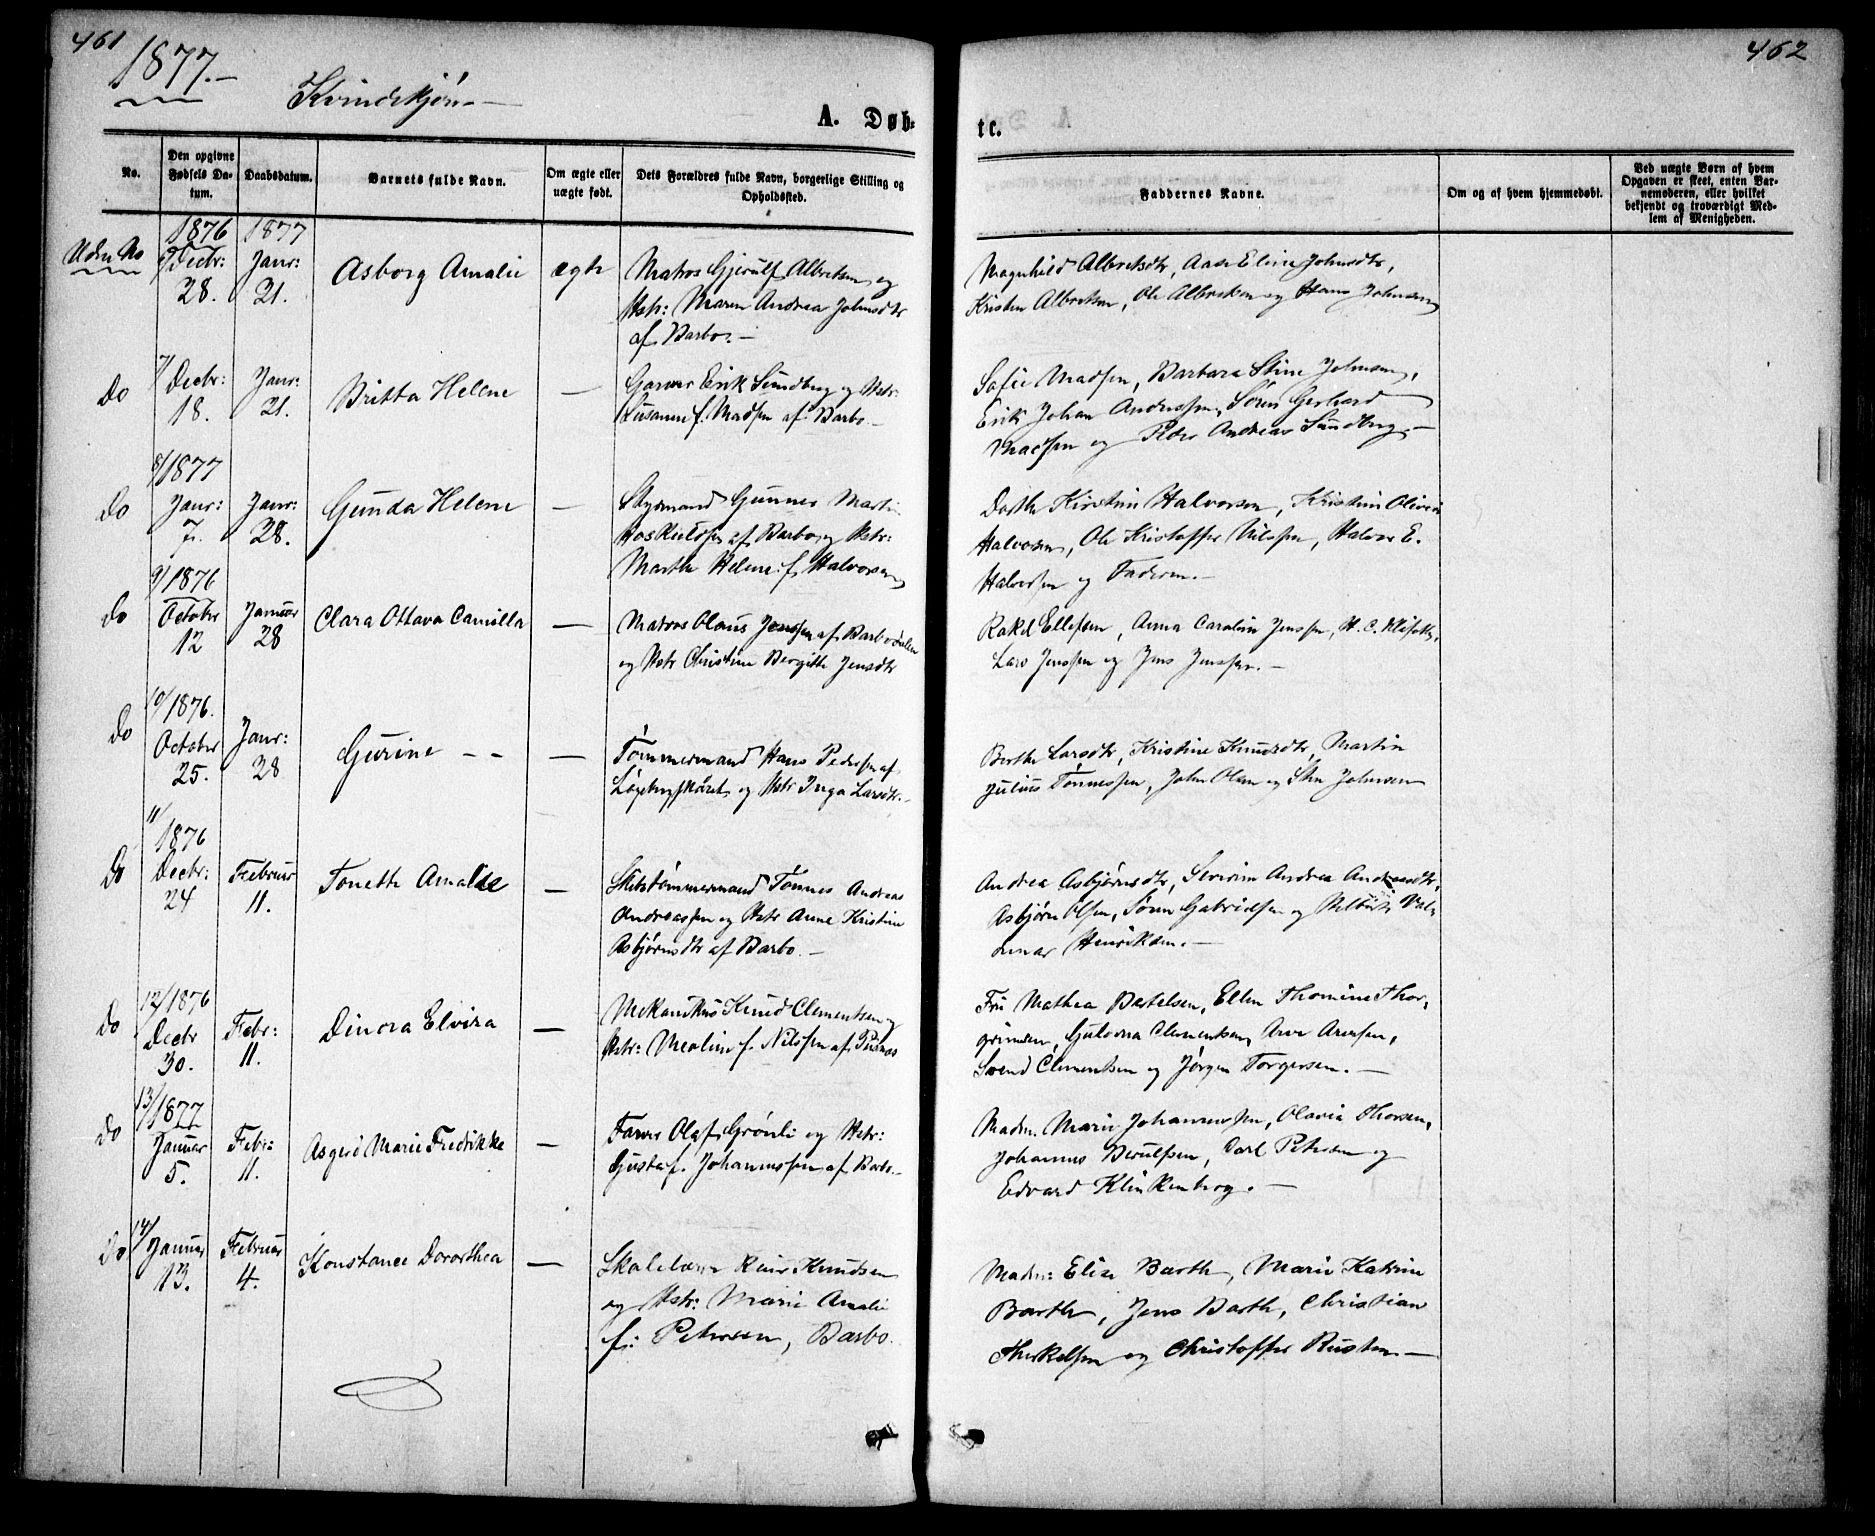 461
1877.—
Kvindekjøn—
A. Døb=
No.
Den opgivne Fødsels Da-tum.
Daabsdatum.
Barnets fulde Navn.
Om ægte eller uægte født.
Dets Forældres fulde Navn, borgerlige Stilling og Opholdssted.
1876 1877
Uden No 6/ Decbr: 28. Janr: 21. Asborg Amalie ægte Matros Gjerulf Albretsen og
Hstr: Maren Andrea Johnsdtr
af Barbo.—
Do 7/ Decbr: 18. Janr: 21. Britta Helene — Garver Erik Sundberg og Hstr:
Susanne f. Madsen af Barbo.—
8/1877
Do Janr: 7. Janr: 28. Gunda Helene — Styrmand Gunner Martin
af Barbo og Hstr:
Marthe Helene f. Halvorsen
9/1876
Do October 12 Januar 28 Clara Ottava Camilla — Matros Olaus Jenssen af Barbodalen
og Hstr Christine Bergitte Jensdtr
10/1876.
Do October 25. Janr: 28 Gurine — — — Tømmermand Hans Pedersen af
og Hstr Inga Larsdtr.—
11/1876
Do Decbr: 24 Februar 11. Tonette Amalie — Skibstømmermand Tønnes Andreas
Andreassen og Hstr Anne Kristine
Asbjørnsdtr af Barbo.—
12/1876
Do Decbr 30. Febr: 11. Dinora Elvira — Mekanikus Knud Clementsen og
Hstr: Mealine f. Nilssen af Pusnæs
13/1877
Do Januar 5. Febr: 11. Asgerd Marie Fredrikke — Farver Olaf Grønli og Hstr:
Gusta f. Johannessen af Barbo.—
14/
Do Januar 13. Februar 4. Konstance Dororthea — Skolelærer Reier Knudsen
og Hstr: Marie Amalie
f: Petersen, Barbo.
462
tc.
Faddernes Navne.
Om og af hvem hjemmedøbt.
Ved uægte Børn af hvem Opgaven er skeet, enten Bar-nemoderen, eller hvilket bekjendt og troværdigt Med-lem af Menigheden.
Magnhild Albretsdtr, Aase Eline Johnsdtr,
Kristen Albretsen, Ole Albretsen og Hans Johnsen
Sofie Madsen, Barbara Stine Johnsen,
Erik Johan Anderssen, Søren Gerhard
Madsen og Peder Andreas Sundberg.—
Dorthe Kirstine Halvorsen, Kristine Olivia
Halvorsen, Ole Kristoffer Nilssen, Halvor E.
Halvorsen og Faderen.—
Rakel Ellefsen, Anna Caroline Jenssen, H. C.
Lars Jenssen og Jens Jenssen.—
Berthe Larsdtr, Kristine Knudsdtr, Martin
Julius Tønnessen, John Olsen og Johnsen
Andrea Asbjørnsdtr, Severine Andrea Andreasdtr,
Asbjørn Olsen, Søren Gabrielsen og Val-
demar Henriksen.—
Fru Mathea Bertelsen, Ellen Thomine Thor-
grimsen, Clementsen, Arve Arnesen,
Svend Clementsen og Jørgen Torgersen.—
Madm. Marie Johannessen, Olavia Thorsen,
Johannes Berulfsen, Carl Petersen og
Edvard Klinkenberg.—
Madm: Elise Barth, Marie Katrine
Barth, Jens Barth, Christian
Therkelsen og Christoffer Rusten—